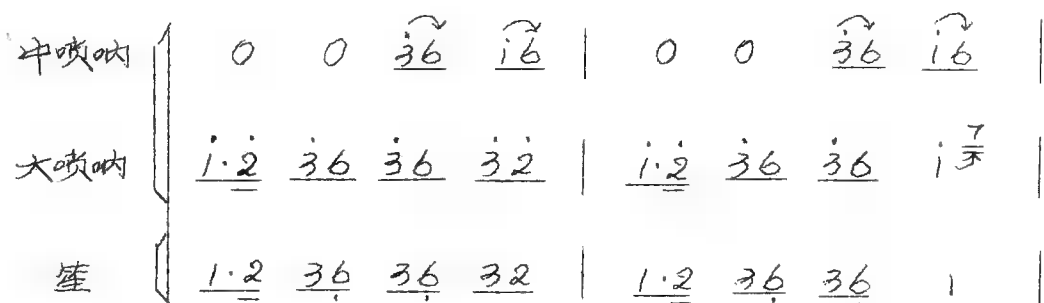 中唢呐 0 0 3̇6 i6 | 0 0 3̇6 i6 |
大唢呐 i·2̇ 3̇6 3̇6 3̇2̇ | i·2̇ 3̇6 3̇6 i |
笙 1·2 36̣ 36̣ 32 | 1·2 36̣ 36 1 |